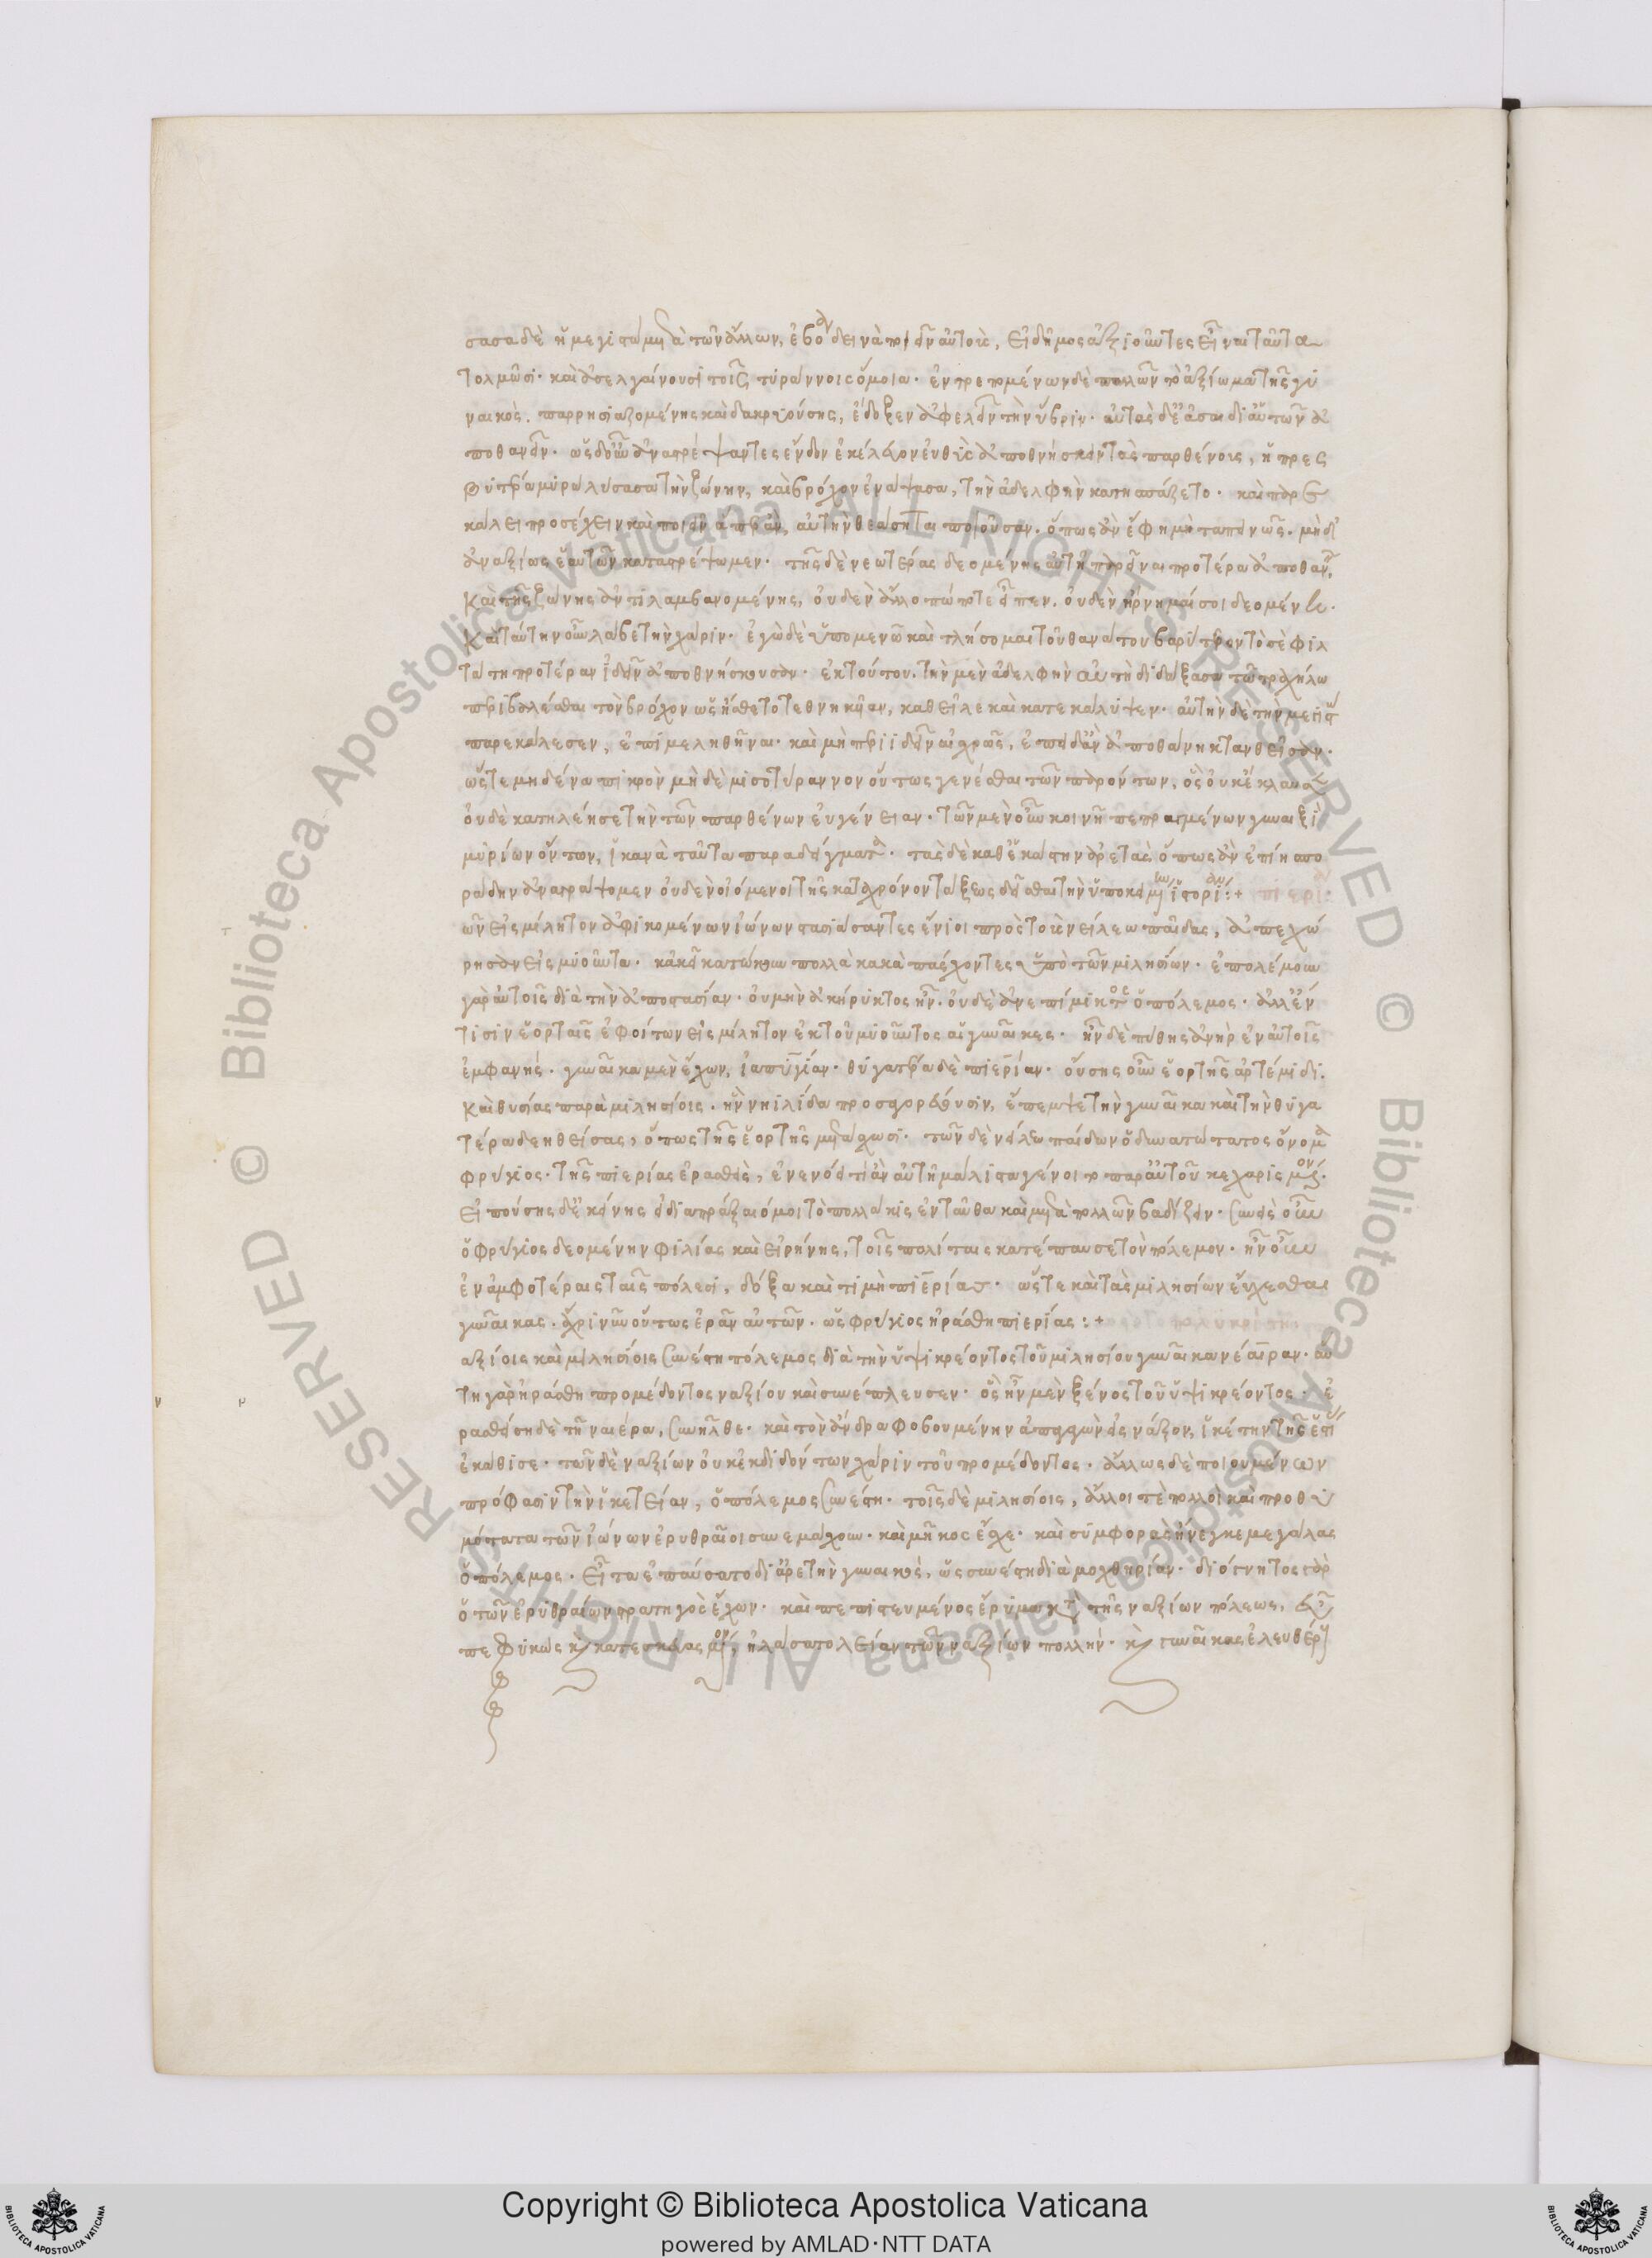 σασα δὲ ἡ μεγιστὼ μετὰ τῶν ἄλλων, ἐβόα δεινὰ ποιεῖν αὐτοὺς, εἰ δῆμος ἀξιοῦντες εἶναι ταῦτα
τολμῶσι· καὶ ἀσελγαίνουσι τοῖς τυράννοις ὅμοια· ἐντρεπομένων δὲ πολλῶν τὸ ἀξίωμα τῆς γυ
ναικὸς. παρρησιαζομένης καὶ δακρυούσης, ἔδοξεν ἀφελεῖν τὴν ὕβριν· αὐτὰς δὲ ἐᾶσαι δι αὑτῶν ἀ
ποθανεῖν. ὡς δ οὖν ἀναστρέψαντες ἔνδον ἐκέλευον εὐθὺς ἀποθνήσκειν τὰς παρθένους, ἡ πρεσ
βυτέρα μυρὼ λύσασα τὴν ζώνην, καὶ βρόχον ἐνάψασα, τὴν ἀδελφὴν κατησπάζετο· καὶ παρε
κάλει προσέχειν καὶ ποιεῖν ἃ περ ἂν, αὐτὴν θεάσηται ποιοῦσαν. ὅπως ἂν ἔφη μὴ ταπεινῶς. μὴ δ
ἀναξίως ἑαυτῶν καταστρέψωμεν· τῆς δὲ νεωτέρας δεομένης αὐτῇ παρεῖναι προτέρα ἀποθανεῖν,
καὶ τῆς ζώνης ἀντιλαμβανομένης, οὐδὲν ἄλλο πώποτε εἶπεν. οὐδὲν ἠρνημαί σοι δεομένῃ.
καὶ ταύτην οὖν λάβε τὴν χάριν· ἐγὼ δὲ ὑπομενῶ καὶ τλήσομαι τοῦ θανάτου βαρύτερον τὸ σὲ φιλ
τάτη προτέραν ἰδεῖν ἀποθνήσκουσαν· ἐκ τούτου. τὴν μὲν ἀδελφὴν αὐτὴ διδάξασα τῷ τραχήλω
περιβαλέσθαι τὸν βρόχον ὡς ᾔσθετο τεθνηκυῖαν, καθεῖλε καὶ κατεκάλυψεν· αὐτὴν δὲ τὴν μεγιστὼ
παρεκάλεσεν, ἐπιμεληθῆναι· καὶ μὴ περιιδεῖν αἰσχρῶς, ἐπειδὰν ἀποθάνῃ κτανθεῖσαν·
ὥστε μηδένα πικρὸν μὴ δὲ μισοτύραννον οὕτως γενέσθαι τῶν παρόντων, ὃς οὐκ ἔκλαυσεν
οὐδὲ κατηλέησε τὴν τῶν παρθένων εὐγένειαν· τῶν μὲν οὖν κοινῇ πεπραγμένων γυναιξὶ
μυρίων ὄντων, ἱκανὰ ταῦτα παραδείγματα· τὰς δὲ καθ ἑκάστην ἀρετὰς ὅπως ἂν ἐπίῃ σπο
ράδην ἀναγράψομεν οὐδὲν οἰόμενοι τῆς κατα χρόνον τάξεως δεῖσθαι τὴν ὑποκειμένην ἱστορίαν:+ πιερία
ῶν εἰς μίλητον ἀφικομένων ἰώνων στασιάσαντες ἔνιοι πρὸς τοὺς νείλεω παῖδας, ἀπεχώ
ρησαν εἰς μυοῦντα· κἀκεῖ κατώκουν πολλὰ κακὰ πάσχοντες ὑπὸ τῶν μιλησίων· ἐπολέμουν
γὰρ αὐτοῖς διὰ τὴν ἀποστασίαν· οὐ μὴν ἀκήρυκτος ἦν. οὐδὲ ἀνεπίμικτος ὁ πόλεμος· ἀλλ ἔν
τισιν ἑορταῖς ἐφοίτων εἰς μίλητον ἐκ τοῦ μυοῦντος αἱ γυναῖκες· ἦν δὲ πύθης ἀνὴρ ἐν αὐτοῖς
ἐμφανής· γυναῖκα μὲν ἔχων, ἰαπυγίαν· θυγατέρα δὲ πιερίαν· οὔσης οὖν ἑορτῆς ἀρτέμιδι.
καὶ θυσίας παρὰ μιλησίοις. ἣν νηιλίδα προσαγορεύουσιν, ἔπεμψε τὴν γυναῖκα καὶ τὴν θυγα
τέρα δεηθείσας, ὅπως τῆς ἑορτῆς μετάσχωσι· τῶν δὲ νείλεω παίδων ὁ δυνατώτατος ὄνομα
φρύγιος· τῆς πιερίας ἐρασθεὶς, ἐνενόει τί ἂν αὐτῇ μάλιστα γένοιτο παρ αὐτοῦ κεχαρισμένον.
εἰπούσης δ ἐκείνης εἰ διαπράξαιό μοι τὸ πολλάκις ἐνταῦθα καὶ μετὰ πολλῶν βαδίζειν· συνεὶς οὖν
ὁ φρύγιος δεομένην φιλίας καὶ εἰρήνης, τοῖς πολίταις κατέπαυσε τὸν πόλεμον· ἦν οὖν
ἐν ἀμφοτέραις ταῖς πόλεσι, δόξα καὶ τιμὴ πιερίας· ὥστε καὶ τὰς μιλησίων εὔχεσθαι
γυναῖκας. ἄχρι νῦν οὕτως ἐρᾶν αὐτῶν. ὡς φρύγιος ἠράσθη πιερίας:+
αξίοις καὶ μιλησίοις συνέστη πόλεμος διὰ τὴν ὑψικρέοντος τοῦ μιλησίου γυναῖκα νέαιραν· αὕ
τη γὰρ ἠράσθη προμέδοντος ναξίου καὶ συνέπλευσεν· ὃς ἦν μὲν ξένος τοῦ ὑψικρέοντος· ἐ
ρασθείση δὲ τῇ νεαίρα, συνῆλθε· καὶ τὸν ἄνδρα φοβουμένην ἀπαγαγὼν εἰς νάξον, ἱκέτην τῆς ἑστίας
ἐκάθισε· τῶν δὲ ναξίων οὐκ ἐκδιδόντων χάριν τοῦ προμέδοντος· ἄλλως δὲ ποιουμένων
πρόφασιν τὴν ἱκετείαν, ὁ πόλεμος συνέστη· τοῖς δὲ μιλησίοις, ἄλλοι τὲ πολλοὶ καὶ προθυ
μότατα τῶν ἰώνων ἐρυθραῖοι συνεμάχουν· καὶ μῆκος ἔσχε· καὶ συμφορὰς ἤνεγκε μεγάλας
ὁ πόλεμος· εἶτα ἐπαύσατο δι ἀρετὴν γυναικὸς, ὡς συνέστη διὰ μοχθηρίαν· διόγνητος γὰρ
ὁ τῶν ἐρυθραίων στρατηγὸς ἔχων· καὶ πεπιστευμένος ἔρυμα κατὰ τῆς ναξίων πόλεως, εὖ
πεφυκὼς καὶ κατεσκευασμένον, ἠλάσατο λείαν τῶν ναξίων πολλήν· καὶ γυναῖκας ἐλευθέρας